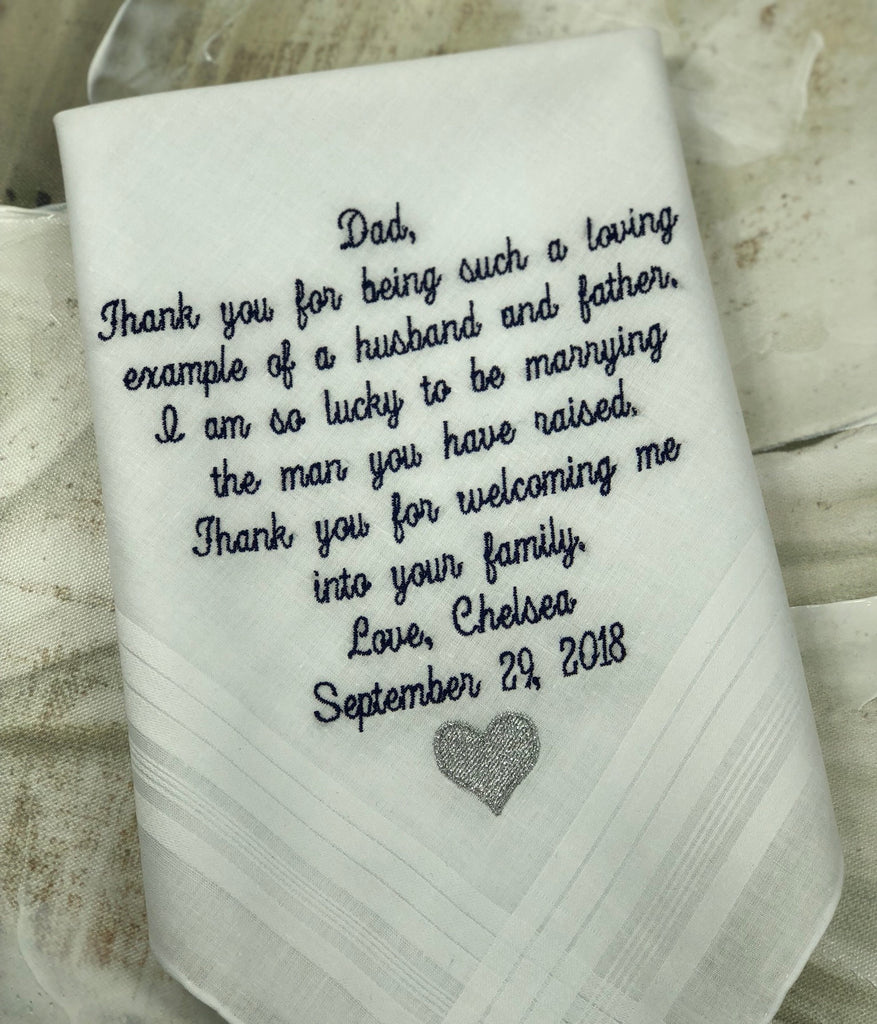 Dad,
Thank you for being such a loving
example of a husband and father.
I am so lucky to be marrying
the man you have raised.
Thank you for welcoming me
into your family.
Love, Chelsea
September 29, 2018